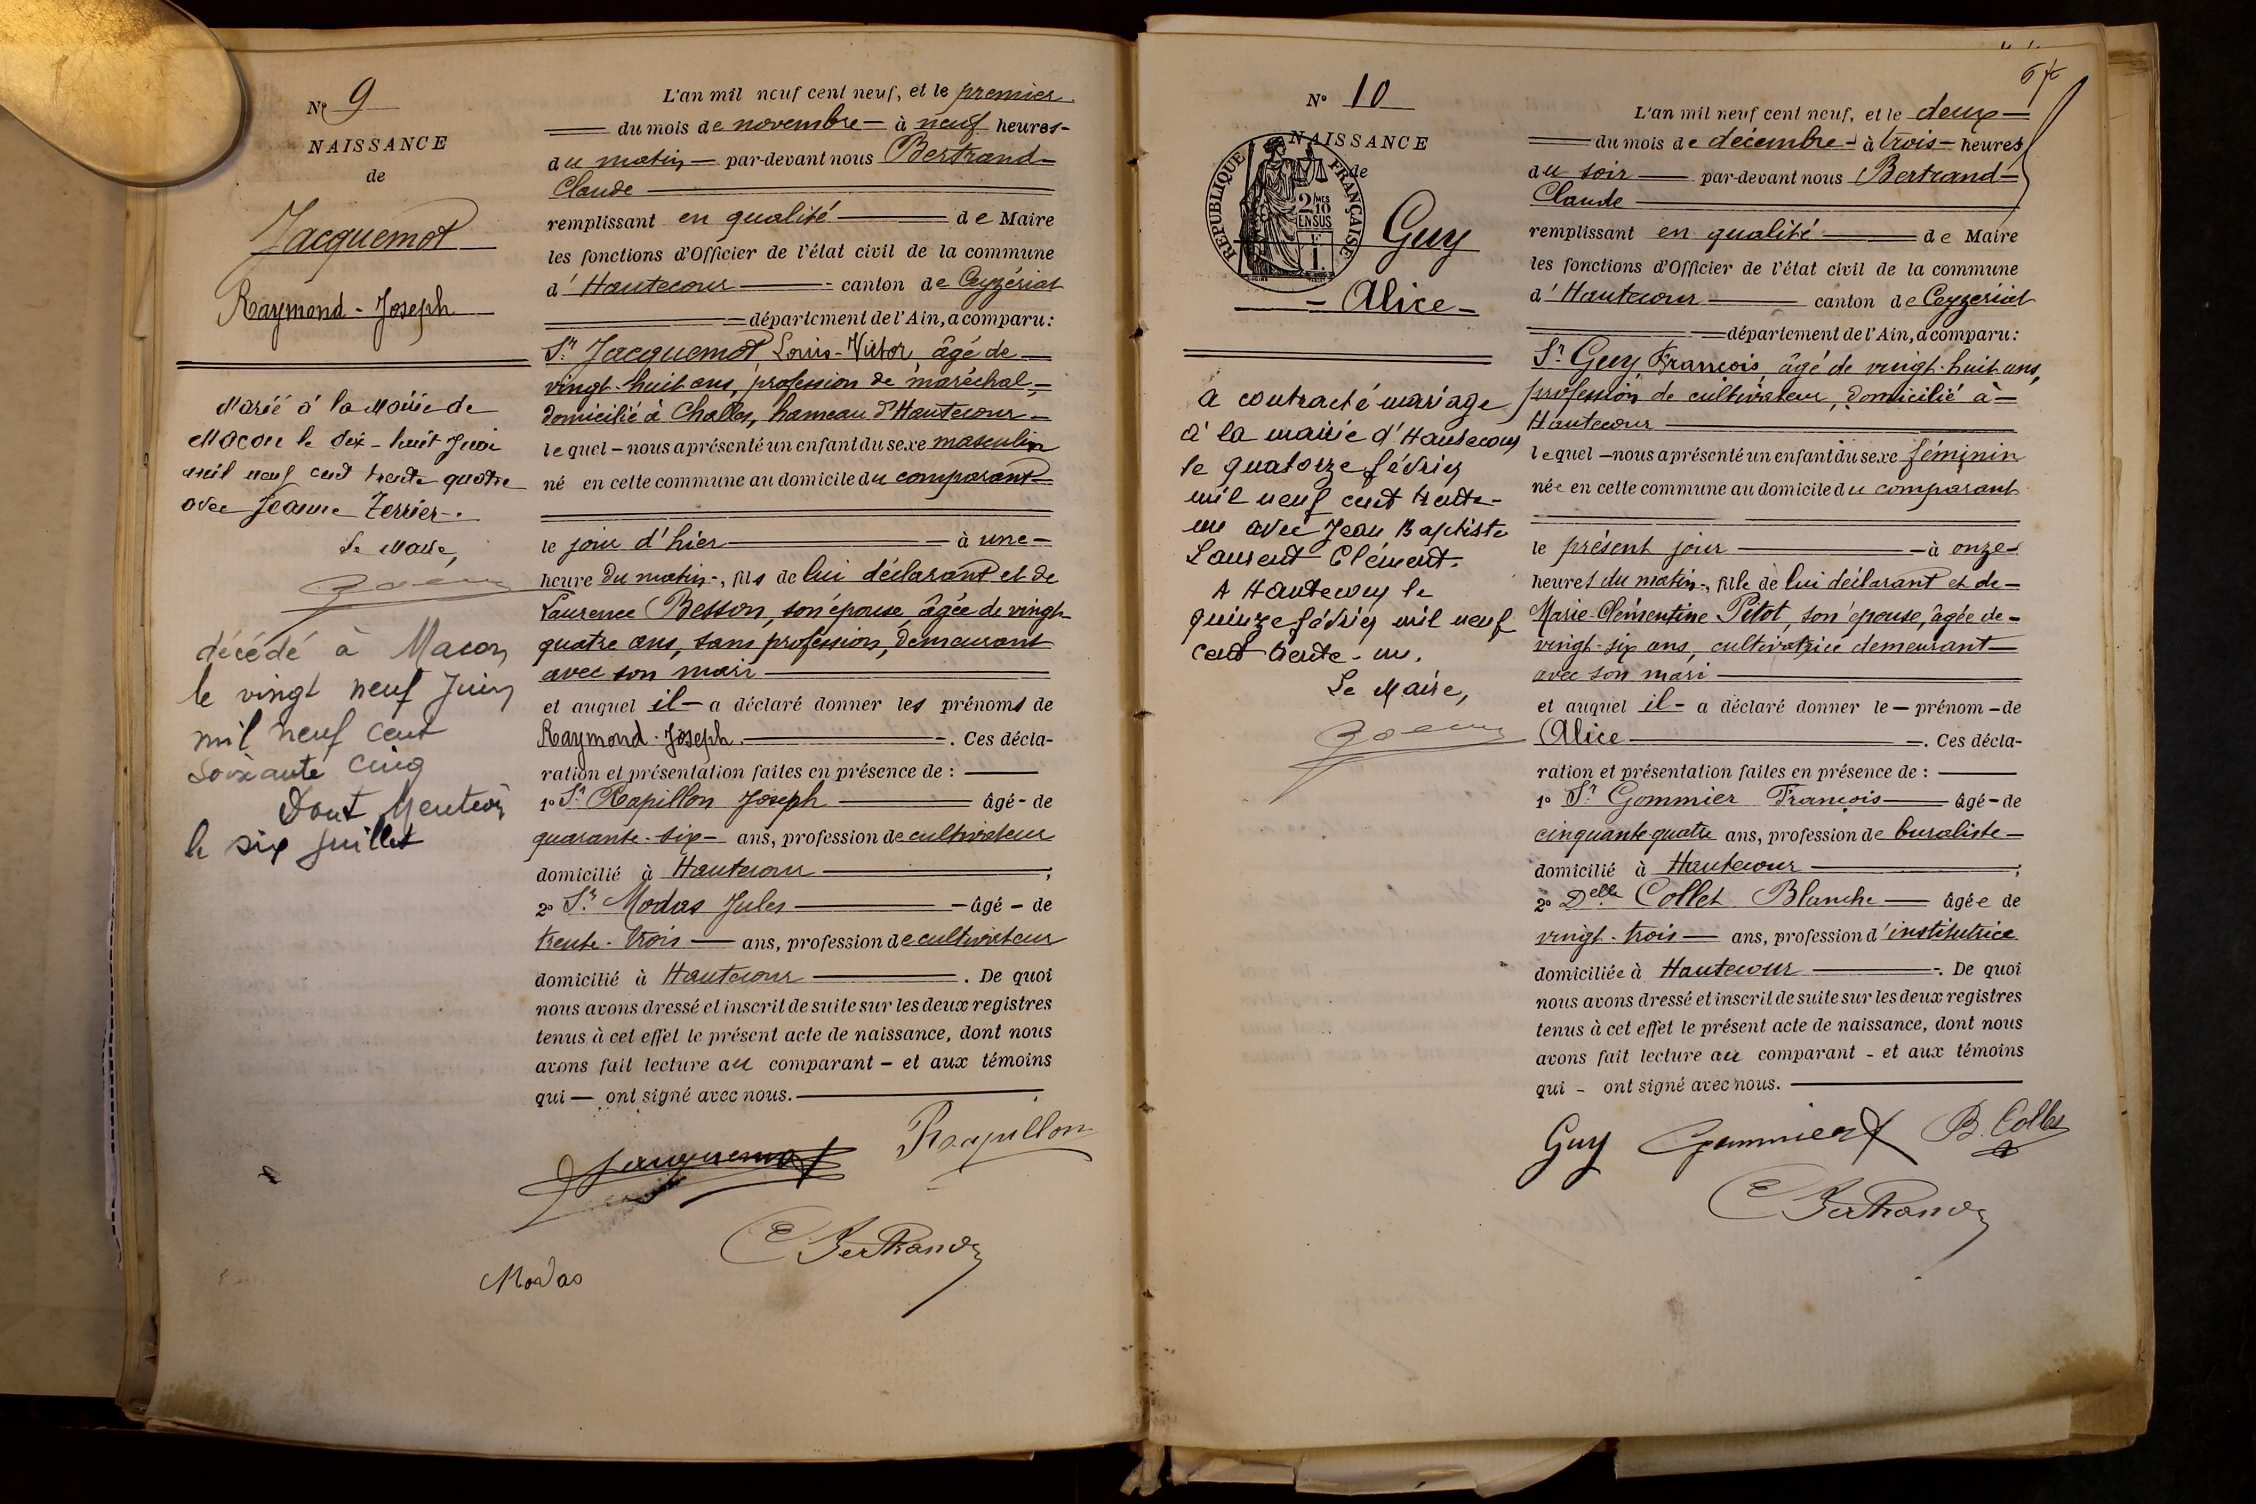 Nº 9
NAISSANCE
de
Jacquemot
Raymond - Joseph
Marié à la Mairie de
Macon le dix - huit Juin
mil neuf cent trente quatre
avec Jeanne Terrier.
Le Maire,
décédé à Macon
le vingt neuf Juin
mil neuf cent
soixante cinq
Dont Mention
le six Juillet
L'an mil neuf cent neuf, et le premier
du mois de novembre à neuf heures
du matin par-devant nous Bertrand
Claude
remplissant en qualité de Maire
les fonctions d'Officier de l'état civil de la commune
d'Hautecour canton de Ceyzériat
département de l'Ain, a comparu:
Sr Jacquemot, Louis-Victor, âgé de
vingt-huit ans, profession de maréchal,
domicilié à Challes, hameau d'Hautecour
lequel nous a présenté un enfant du sexe masculin
né en cette commune au domicile du comparant
le jour d'hier à une
heure du matin, fils de lui déclarant et de
Laurence Besson, son épouse, âgée de vingt
quatre ans, sans profession, demeurant
avec son mari
et auquel il a déclaré donner les prénoms de
Raymond-Joseph. Ces décla-
ration et présentation faites en présence de :
1º Sr Rapillon Joseph âgé de
quarante-six ans, profession de cultivateur
domicilié à Hautecour ;
2º Sr Modas Jules âgé de
trente-trois ans, profession de cultivateur
domicilié à Hautecour. De quoi
nous avons dressé et inscrit de suite sur les deux registres
tenus à cet effet le présent acte de naissance, dont nous
avons fait lecture au comparant et aux témoins
qui ont signé avec nous.
Jacquemot Rapillon
C Bertrand
Modas
64
Nº 10
NAISSANCE
de
RÉPUBLIQUE FRANÇAISE
2/10mes
EN SUS
1F
Guy
Alice
a contracté mariage
à la mairie d'Hautecour
le quatorze février
mil neuf cent trente-
un avec Jean Baptiste
Laurent Clément.
A Hautecour le
quinze février mil neuf
cent trente-un.
Le Maire,
L'an mil neuf cent neuf, et le deux
du mois de décembre à trois heures
du soir par-devant nous Bertrand
Claude
remplissant en qualité de Maire
les fonctions d'Officier de l'état civil de la commune
d'Hautecour canton de Ceyzeriat
département de l'Ain, a comparu:
Sr Guy, François, âgé de vingt-huit ans,
profession de cultivateur, domicilié à
Hautecour
lequel nous a présenté un enfant du sexe féminin
née en cette commune au domicile du comparant
le présent jour à onze
heures du matin, fille de lui déclarant et de
Marie-Clémentine Pitot, son épouse, âgée de
vingt-six ans, cultivatrice demeurant
avec son mari
et auquel il a déclaré donner le prénom de
Alice. Ces décla-
ration et présentation faites en présence de :
1º Sr Gommier François âgé de
cinquante-quatre ans, profession de buraliste
domicilié à Hautecour ;
2º Delle Collet Blanche âgée de
vingt-trois ans, profession d'institutrice
domiciliée à Hautecour. De quoi
nous avons dressé et inscrit de suite sur les deux registres
tenus à cet effet le présent acte de naissance, dont nous
avons fait lecture au comparant et aux témoins
qui ont signé avec nous.
Guy Gommier B. Collet
C Bertrand